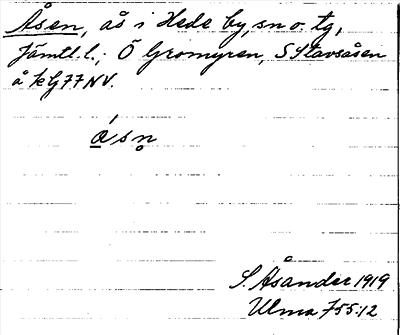 Åsen, ås i Hede by, sn o. tg,
Jämtl. l.; Ö Gromyren, S Stavsåsen
å k G77NV.
ǻsn̥
S. Åsander 1919
Ulma 755:12